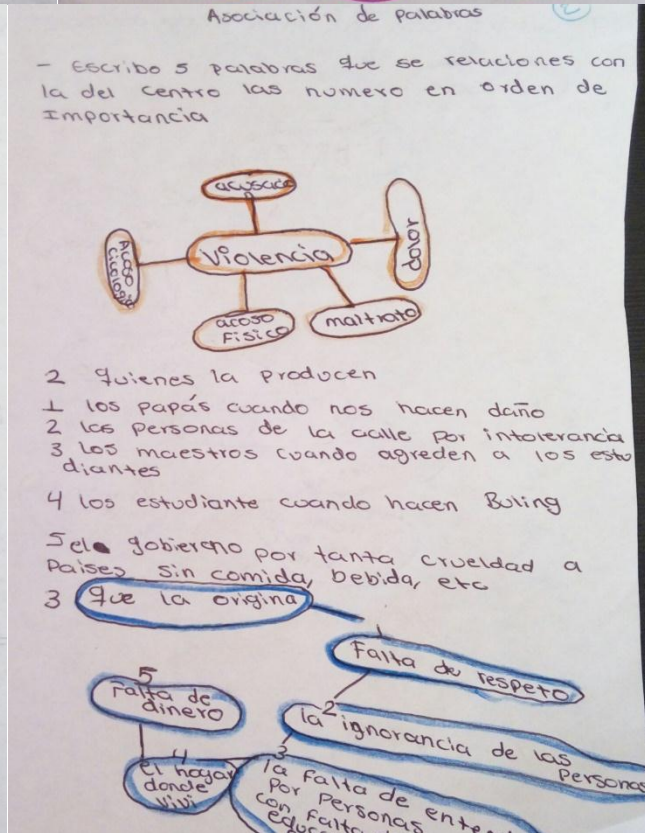 Asociación de palabras
2
- Escribo 5 palabras que se relaciones con
la del centro las numero en orden de
Importancia
Violencia
dolor
Acoso
acoso
Fisico
maltrato
2 quienes la producen
1 los papás cuando nos hacen daño
2 las personas de la calle por intolerancia
3 los maestros cuando agreden a los estu
diantes
4 los estudiante cuando hacen Buling
5 el gobierno por tanta crueldad a
Paises sin comida, bebida, etc
3 que la origina
1
Falta de respeto
2
la ignorancia de las
personas
3
la falta de
Por personas
con falta
4
el hogar
donde
vivi
5
Falta de
dinero